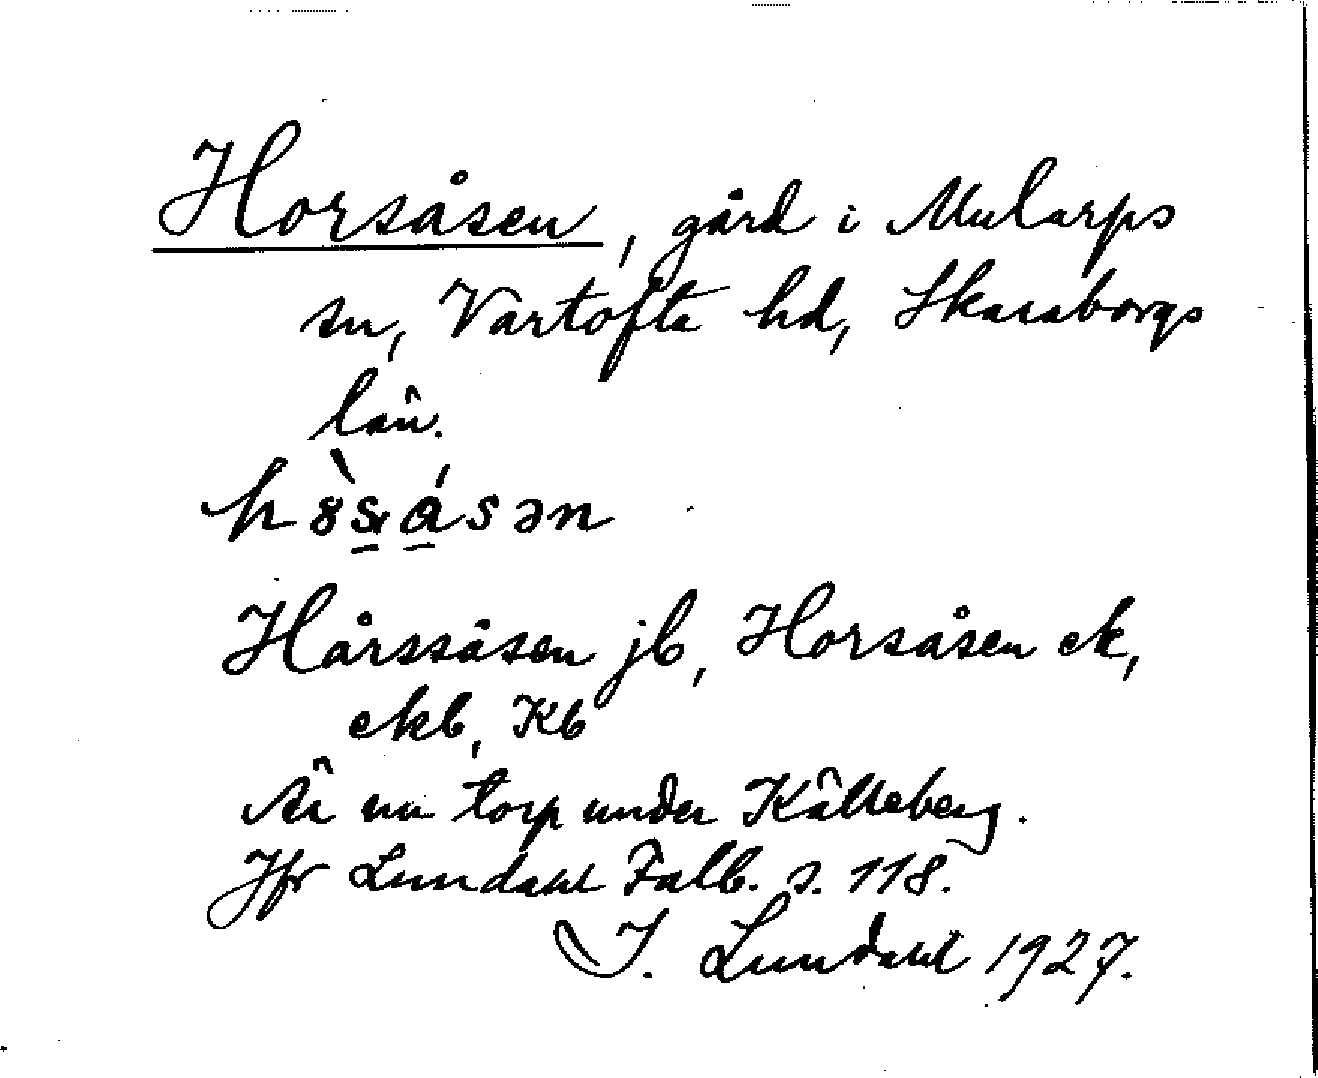 Horsåsen, gård i Mularps
sn, Vartofta hd, Skaraborgs
län.
Hårssåsen jb, Horsåsen ek,
ekb, Kb
Är nu torp under Källeberg.
Jfr Lundahl Falb. s. 118.
I. Lundahl 1927.